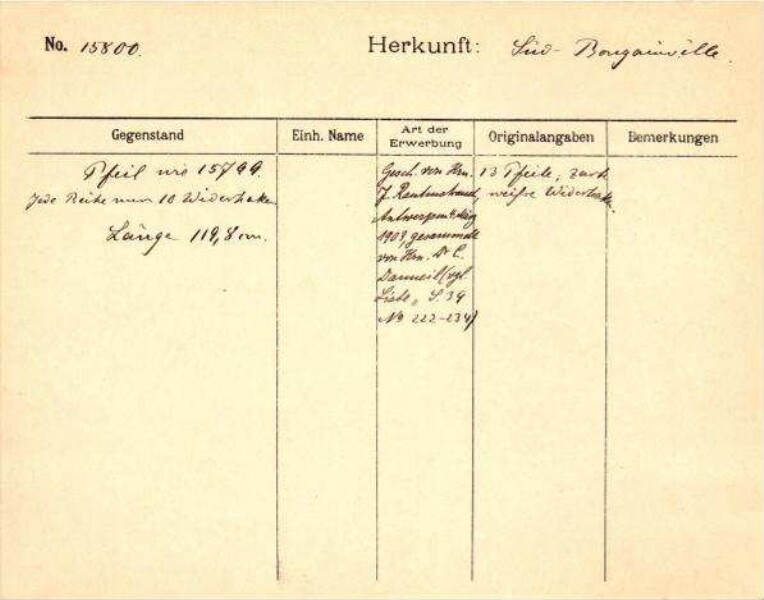 No. 15800.
Herkunft: Süd-Bougainville.
Gegenstand
Einh. Name
Art der Erwerbung
Originalangaben
Bemerkungen
Pfeil wie 15799.
Jede Reihe nur 10 Widerhaken
Länge 119,8 cm.
Gesch. von Hrn.
J. Rautenstrauch,
Antwerpen März
1909, gesammelt
von Hrn. Dr C.
Danneil (vgl.
Liste, S. 39
No 222-234)
13 Pfeile,
weiße Widerhaken